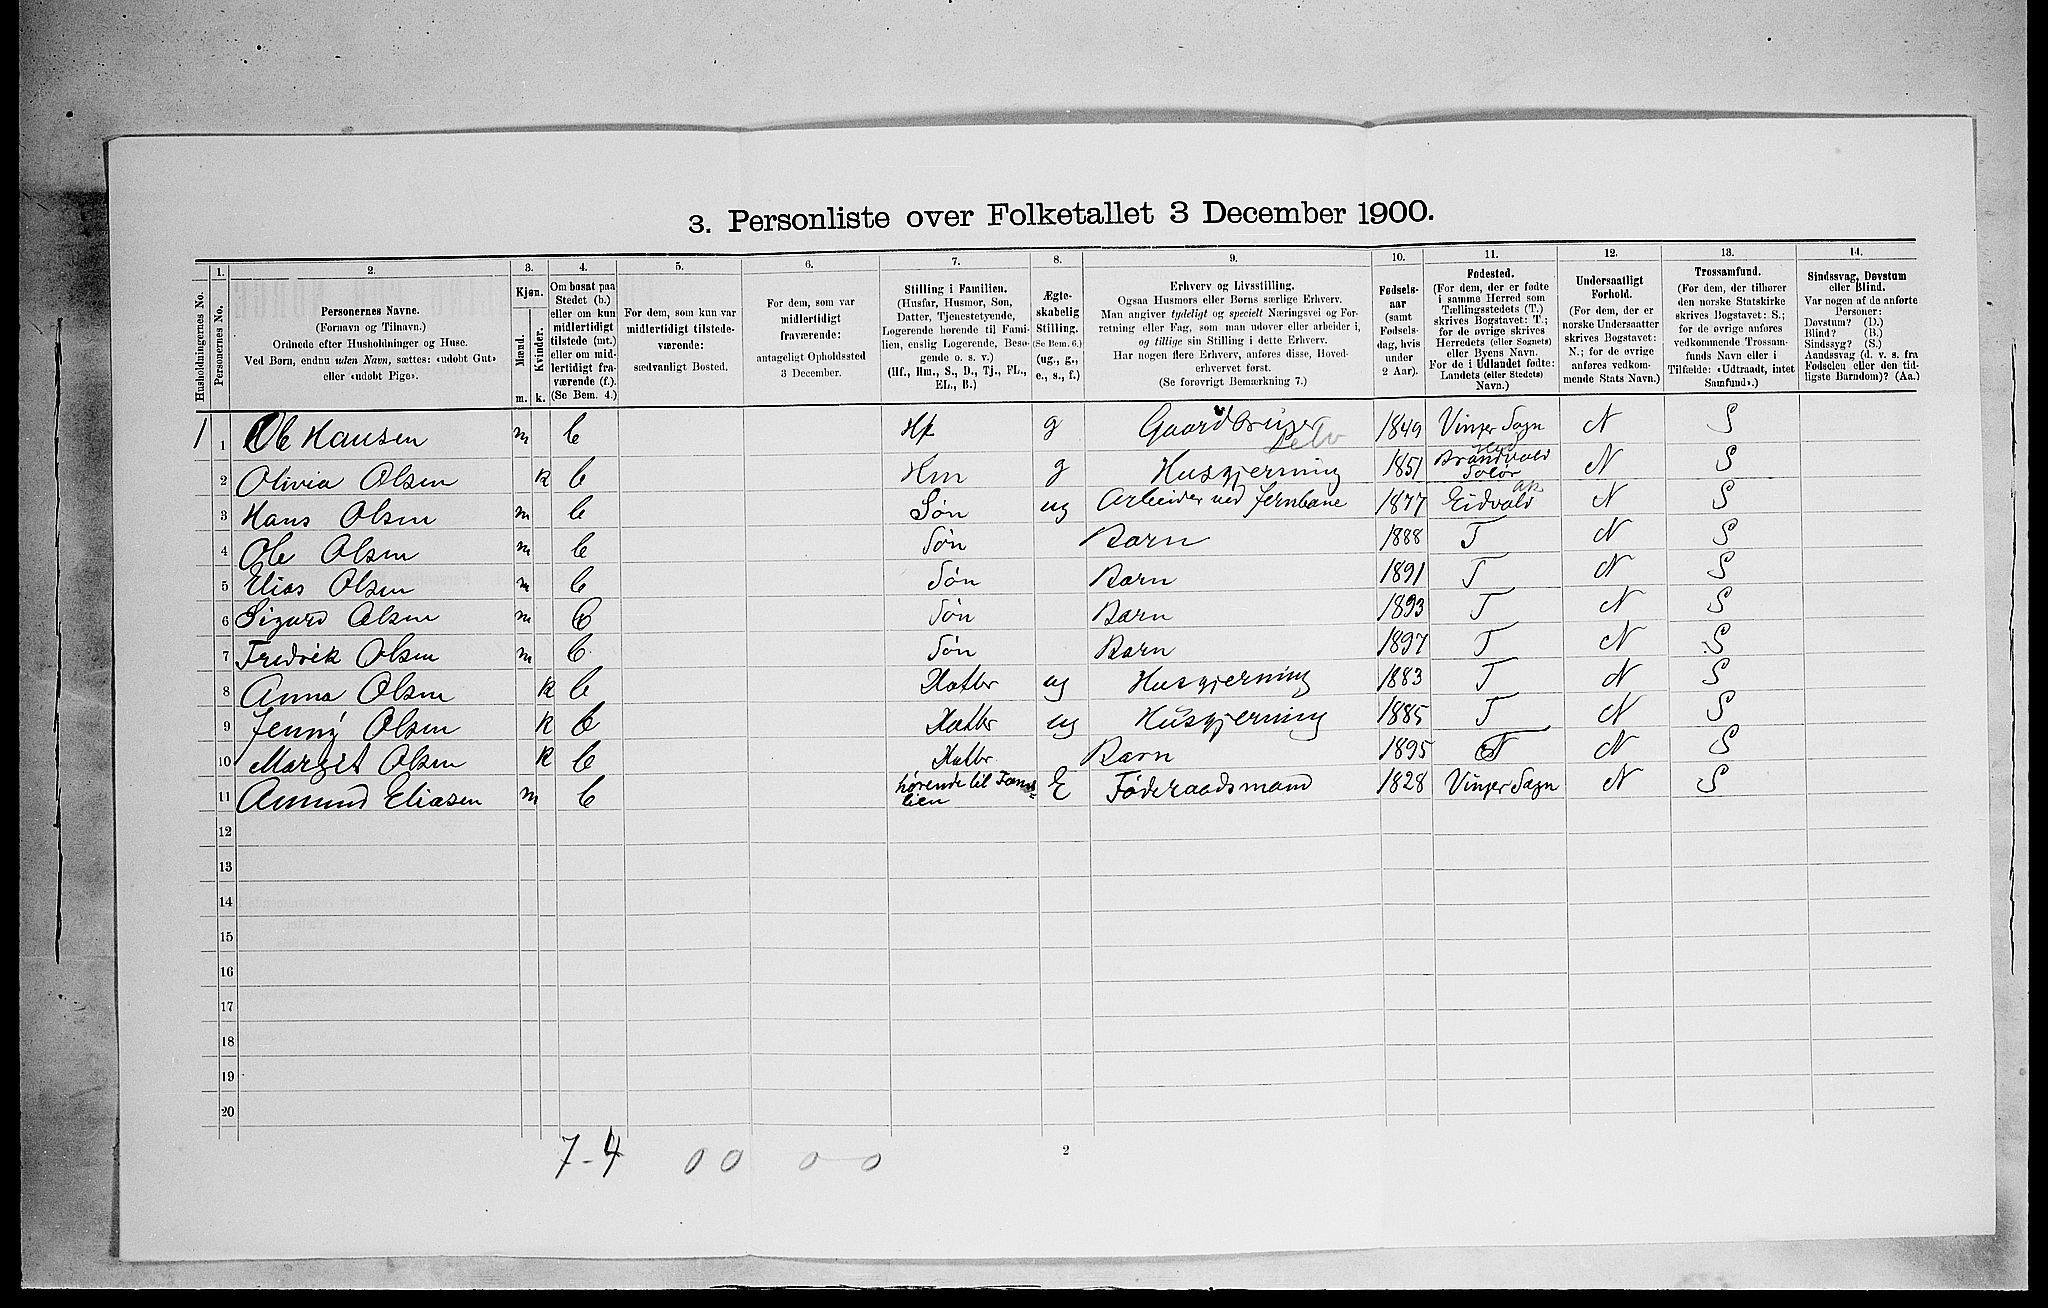 3. Personliste over Folketallet 3 December 1900.
Husholdningernes No.
1.
Personernes No.
2.
Personernes Navne.
(Fornavn og Tilnavn.)
Ordnede efter Husholdninger og Huse.
Ved Børn, endnu uden Navn, sættes: «udøbt Gut»
eller «udøbt Pige».
3.
Kjøn.
Mænd.
Kvinder.
m.
k.
4.
Om bosat paa
Stedet (b.)
eller om kun
midlertidigt
tilstede (mt.)
eller om mid-
lertidigt fra-
værende (f.).
(Se Bem. 4.)
5.
For dem, som kun var
midlertidigt tilstede-
værende:
sædvanligt Bosted.
6.
For dem, som var
midlertidigt
fraværende:
antageligt Opholdssted
3 December.
7.
Stilling i Familien.
(Husfar, Husmor, Søn,
Datter, Tjenestetyende,
Logerende hørende til Fami-
lien, enslig Logerende, Besø-
gende o. s. v.)
(Hf., Hm., S., D., Tj., FL.,
EL., B.)
8.
Ægte-
skabelig
Stilling.
(Se Bem. 6.)
(ug., g.,
e., s., f.)
9.
Erhverv og Livsstilling.
Ogsaa Husmors eller Børns særlige Erhverv.
Man angiver tydeligt og specielt Næringsvei og For-
retning eller Fag, som man udover eller arbeider i,
og tillige sin Stilling i dette Erhverv.
Har nogen flere Erhverv, anføres disse, Hoved-
erhvervet først.
(Se forøvrigt Bemærkning 7.)
10.
Fødsels-
aar
(samt
Fødsels-
dag, hvis
under
2 Aar).
11.
Fødested.
(For dem, der er fødte
i samme Herred som
Tællingsstedets (T.)
skrives Bogstavet: T.;
for de øvrige skrives
Herredets (eller Sognets)
eller Byens Navn.
For de i Udlandet fødte:
Landets (eller Stedets)
Navn.)
12.
Undersaatligt
Forhold.
(For dem, der er
norske Undersaatter
skrives Bogstavet:
N.; for de øvrige
anføres vedkom-
mende Stats Navn.)
13.
Trossamfund.
(For dem, der tilhører
den norske Statskirke
skrives Bogstavet: S.;
for de øvrige anføres
vedkommende Trossam-
funds Navn eller i
Tilfælde: «Udtraadt, intet
Samfund».)
14.
Sindssvag, Døvstum
eller Blind.
Var nogen af de anførte
Personer:
Døvstum? (D.)
Blind? (B.)
Sindssyg? (S.)
Aandssvag (d. v. s. fra
Fødselen eller den tid-
ligste Barndom)? (Aa.)
1 1 Ole Hansen m b Hf g Gaardbruger Selv 1849 Vinger Sogn N S
2 Olivia Olsen k b Hm g Husgjerning 1851 Brandvold Solør N S
3 Hans Olsen m b Søn ug Arbeider ved Jernbane 1877 Eidvold Ak N S
4 Ole Olsen m b Søn Barn 1888 T N S
5 Elias Olsen m b Søn Barn 1891 T N S
6 Sigurd Olsen m b Søn Barn 1893 T N S
7 Fredrik Olsen m b Søn Barn 1897 T N S
8 Anna Olsen k b Datter ug Husgjerning 1883 T N S
9 Jenny Olsen k b Datter ug Husgjerning 1885 T N S
10 Margit Olsen k b Datter Barn 1895 T N S
11 Amund Eliasen m b hørende til Fami=
lien E Føderaadsmand 1828 Vinger Sogn N S
12
13
14
15
16
17
18
19
20
7-4 0 0 0 0
2